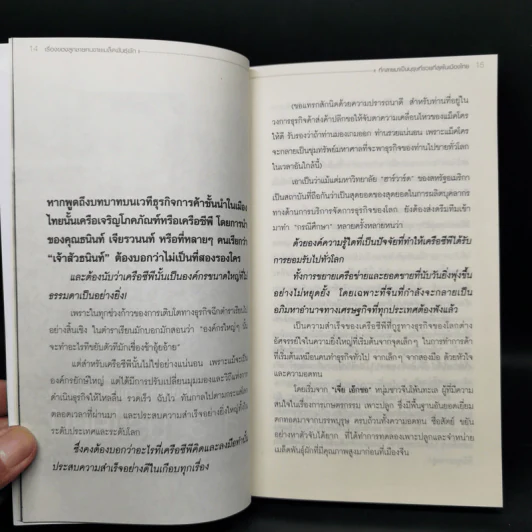 14 • เรื่องของลูกชายคนขายเมล็ดพันธุ์ผัก •
หากพูดถึงบทบาทบนเวทีธุรกิจการค้าชั้นนำในเมือง
ไทยนั้นเครือเจริญโภคภัณฑ์หรือเครือซีพี โดยการนำ
ของคุณธนินท์ เจียรวนนท์ หรือที่หลายๆ คนเรียกว่า
“เจ้าสัวธนินท์” ต้องบอกว่าไม่เป็นที่สองรองใคร
และต้องนับว่าเครือซีพีนั้นเป็นองค์กรขนาดใหญ่ที่ไม่
ธรรมดาเป็นอย่างยิ่ง!
เพราะในทุกช่วงก้าวของการเติบโตทางธุรกิจฉีกตำราเรียนไป
อย่างสิ้นเชิง ในตำราเรียนมักบอกมักสอนว่า “องค์กรใหญ่ๆ นั้น
จะทำอะไรก็ขยับตัวทีมักเชื่องช้าอุ้ยอ้าย”
แต่สำหรับเครือซีพีนั้นไม่ใช่อย่างแน่นอน เพราะแม้จะเป็น
องค์กรยักษ์ใหญ่ แต่ได้มีการปรับเปลี่ยนมุมมองและวิธีแห่งการ
ดำเนินธุรกิจให้ไหลลื่น รวดเร็ว ฉับไว ทันกาลไปตามกระแส
ตลอดเวลาที่ผ่านมา และประสบความสำเร็จอย่างยิ่งใหญ่ทั้งใน
ระดับประเทศและระดับโลก
ซึ่งคงต้องบอกว่าอะไรที่เครือซีพีคิดและลงมือทำนั้น
ประสบความสำเร็จอย่างดีในเกือบทุกเรื่อง
• ก้าวสู่ความเป็นคนที่รวยที่สุดในเมืองไทย 15
(ขอแทรกสักนิดด้วยความปรารถนาดี สำหรับท่านที่อยู่ใน
วงการธุรกิจค้าส่งค้าปลีกขอให้จับตาความเคลื่อนไหวของแม็คโคร
ให้ดี รับรองว่าถ้าท่านมองเกมออก ท่านรวยแน่นอน เพราะแม็คโคร
จะกลายเป็นขุมทรัพย์มหาศาลที่จะพาธุรกิจของท่านไปขายทั่วโลก
ในเวลาอันใกล้นี้)
เอาเป็นว่าแม้แต่มหาวิทยาลัย “ฮาร์วาร์ด” ของสหรัฐอเมริกา
เป็นสถาบันที่ถือกันว่าเป็นสุดยอดของสุดยอดในการผลิตบุคลากร
ทางด้านการบริการจัดการธุรกิจของโลก ยังต้องส่งคนทีมเข้า
มาทำ “กรณีศึกษา” หลายครั้งหลายหนว่า
ด้วยองค์ความรู้ใดที่เป็นปัจจัยที่ทำให้เครือซีพีได้รับ
การยอมรับไปทั่วโลก
ทั้งการขยายเครือข่ายและยอดขายที่นับวันยิ่งพุ่งขึ้น
อย่างไม่หยุดยั้ง โดยเฉพาะที่จีนที่กำลังจะกลายเป็น
อภิมหาอำนาจทางเศรษฐกิจที่ทุกประเทศต้องพึ่งแล้ว
เป็นความสำเร็จของเครือซีพีที่กูรูทางธุรกิจของโลกต่าง
อัศจรรย์ใจในความยิ่งใหญ่ที่เริ่มต้นจากจุดเล็กๆ ในการทำการค้า
ที่เริ่มต้นเหมือนคนทำธุรกิจทั่วไป จากเล็กๆ จากสองมือ ด้วยหัวใจ
และความอดทน
โดยเริ่มจาก “เจี่ย เอ็กชอ” หนุ่มชาวจีนโพ้นทะเล ผู้ที่มีความ
สนใจในเรื่องการเกษตรกรรม เพาะปลูก ซึ่งมีพื้นฐานอันยอดเยี่ยม
ตกทอดมาจากบรรพบุรุษ ครบถ้วนทั้งความอดทน ซื่อสัตย์ ขยัน
อย่างหาตัวจับได้ยาก ที่ได้ทำการทดลองเพาะปลูกและจำหน่าย
เมล็ดพันธุ์ผักที่มีคุณภาพสูงมาก่อนที่เมืองจีน